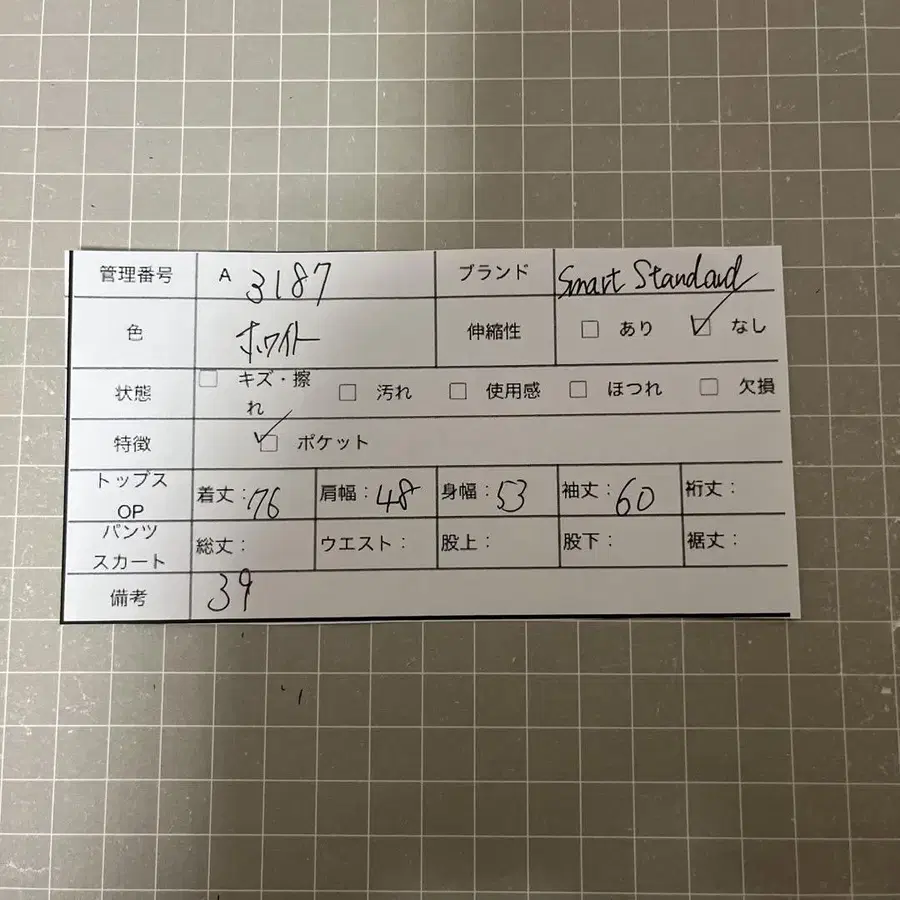 管理番号 A 3187 ブランド Smart Standard
色 ホワイト 伸縮性 □ あり ☑ なし
状態 □ キズ・擦れ □ 汚れ □ 使用感 □ ほつれ □ 欠損
特徴 ☑ ポケット
トップス OP 着丈：76 肩幅：48 身幅：53 袖丈：60 裄丈：
パンツ スカート 総丈： ウエスト： 股上： 股下： 裾丈：
備考 39